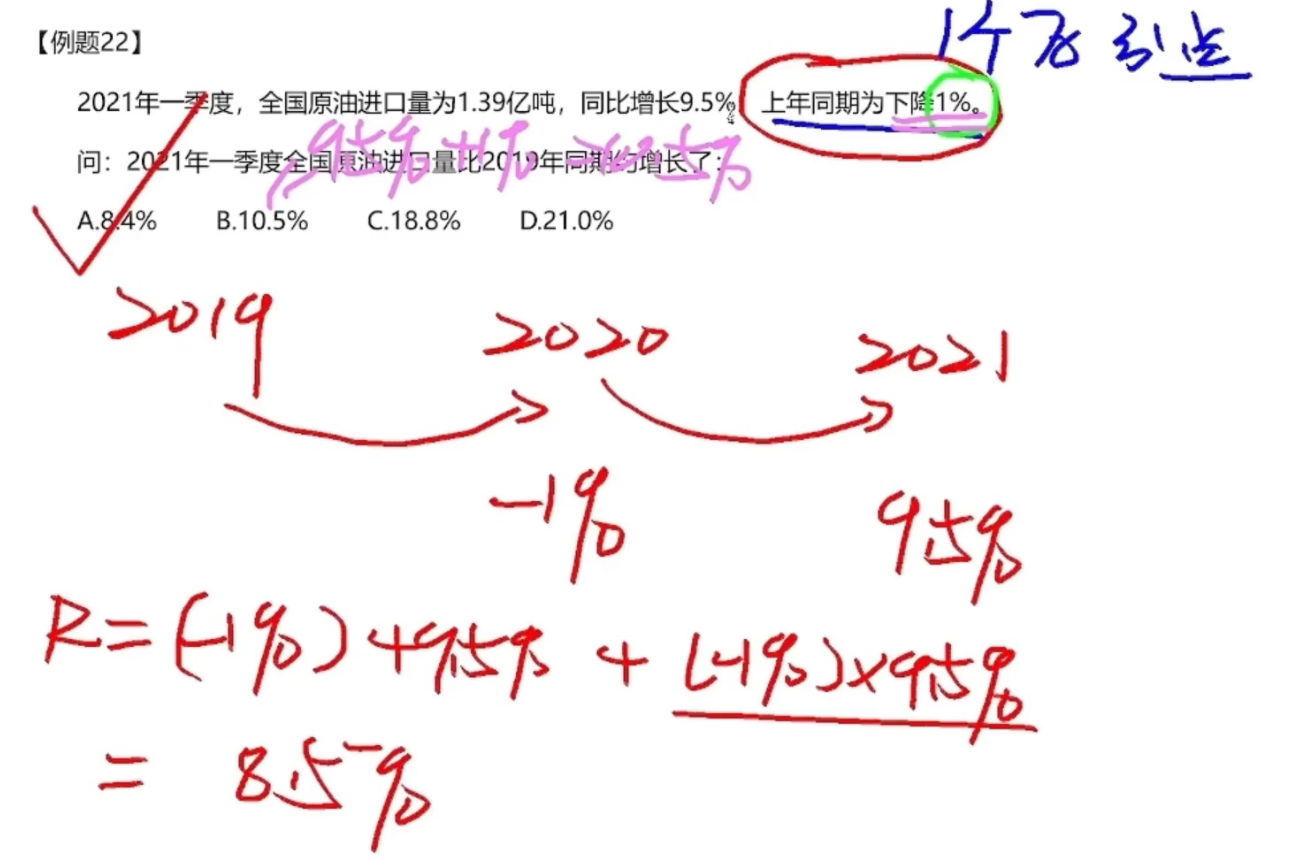 【例题22】
1个百引点
2021年一季度，全国原油进口量为1.39亿吨，同比增长9.5%，上年同期为下降1%。
9.5%+1%=10.5%
问：2021年一季度全国原油进口量比2019年同期约增长了：
A.8.4% B.10.5% C.18.8% D.21.0%
2019 2020 2021
-1% 9.5%
R=(-1%)+9.5%+(-1%)×9.5%
=8.5⁻%